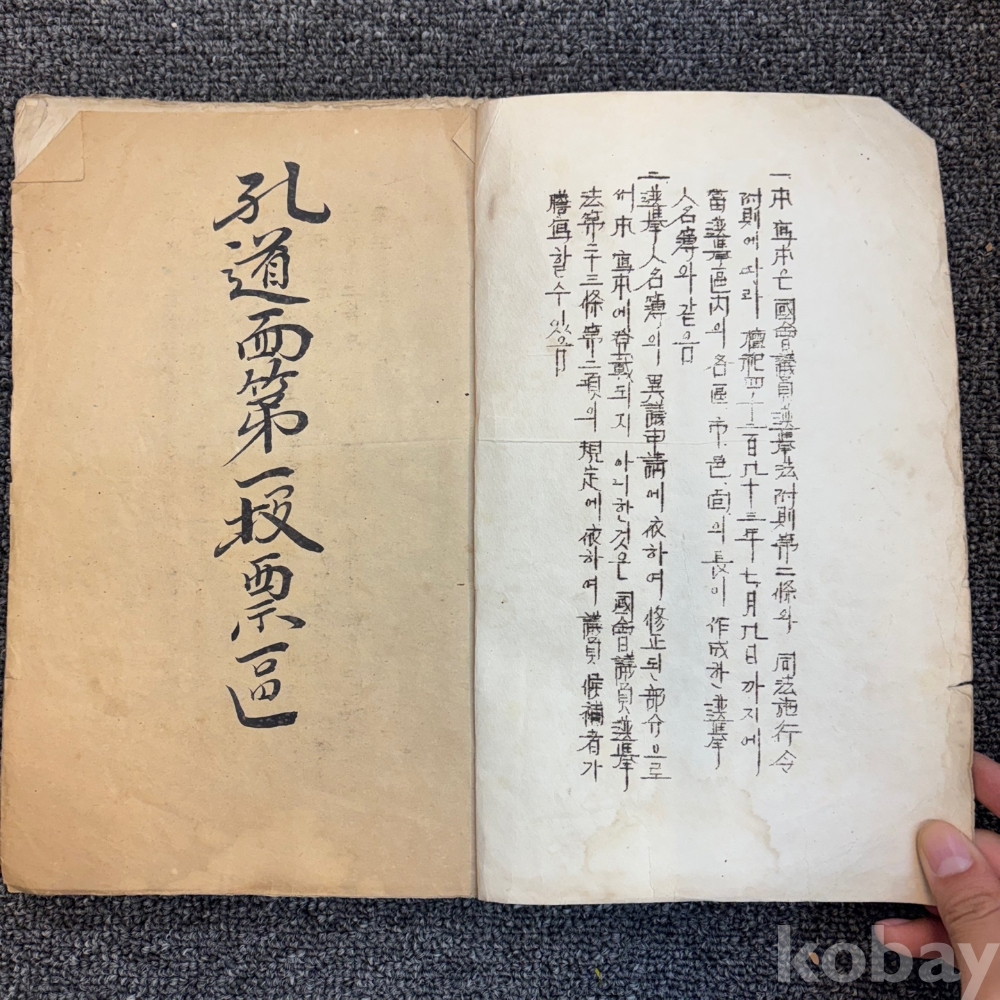 孔道面第一投票區
一 本 寫本은 國會議員選擧法 附則第二條와 同法施行令
附則에 따라 檀紀四千二百九十三年七月九日까지에
當選擧區內의 各區市邑面의 長이 作成한 選擧
人名簿와 같음
二 選擧人名簿의 異議申請에 依하여 修正된 部分으로
써 本 寫本에 登載되지 아니한것은 國會議員選擧
法第二十三條第二項의 規定에 依하여 議員候補者가
謄寫할수있음
kobay